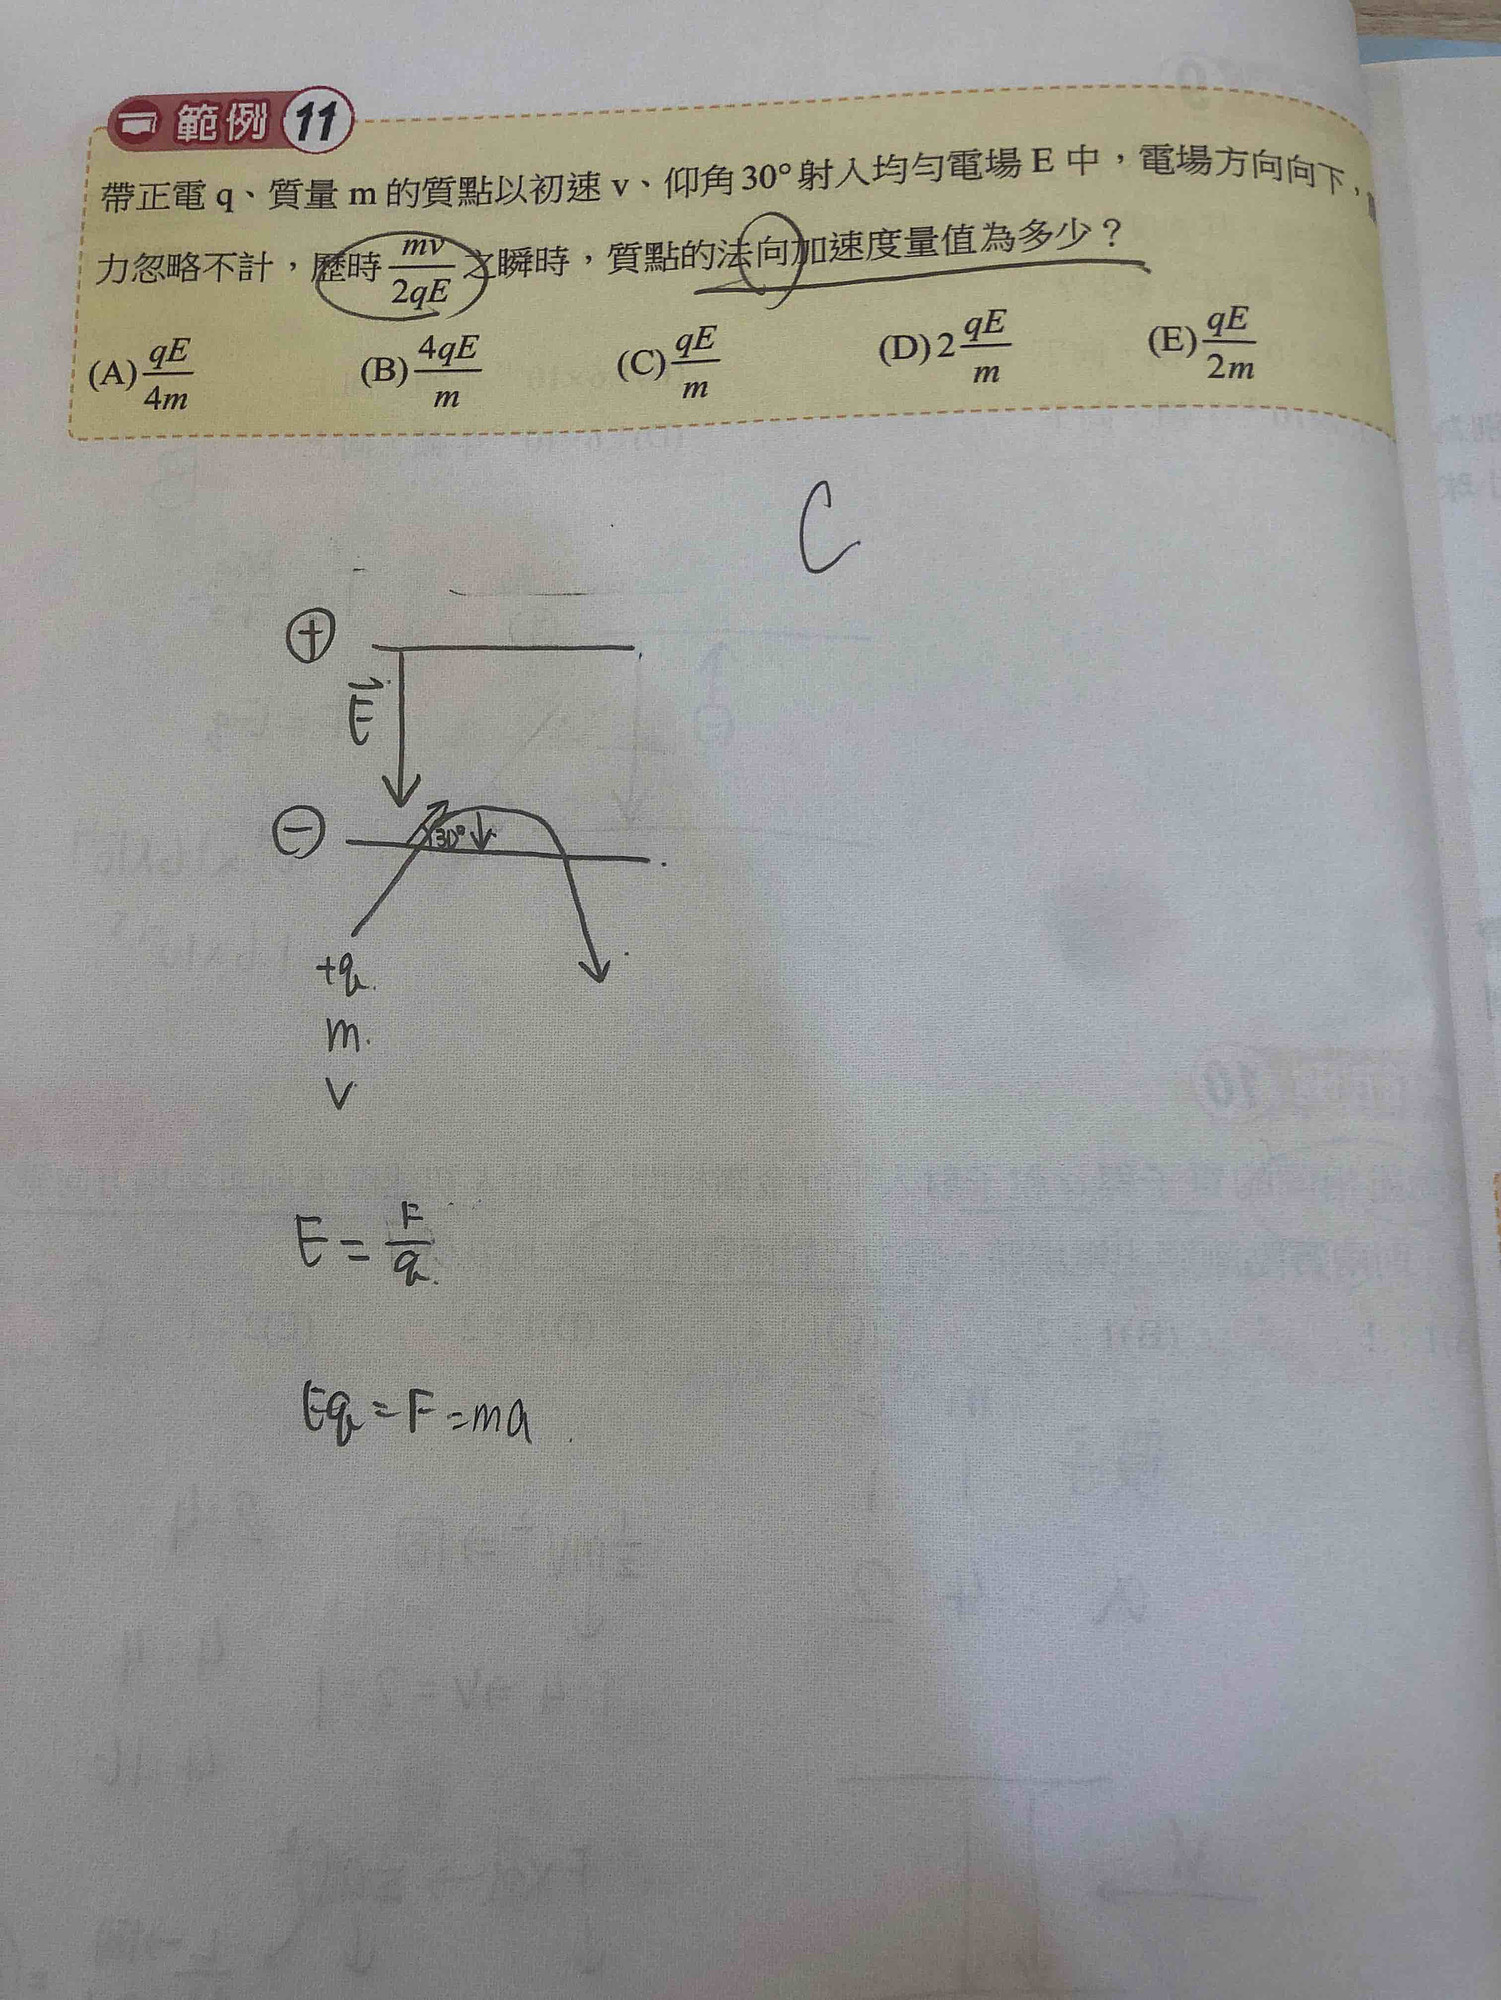 範例 11
帶正電 q、質量 m 的質點以初速 v、仰角 30° 射入均勻電場 E 中，電場方向向下，
力忽略不計，歷時 mv/2qE 之瞬時，質點的法向加速度量值為多少？
(A) qE/4m (B) 4qE/m (C) qE/m (D) 2 qE/m (E) qE/2m
C
+
E
−
30°
+q
m
v
E = F/q
Eq = F = ma